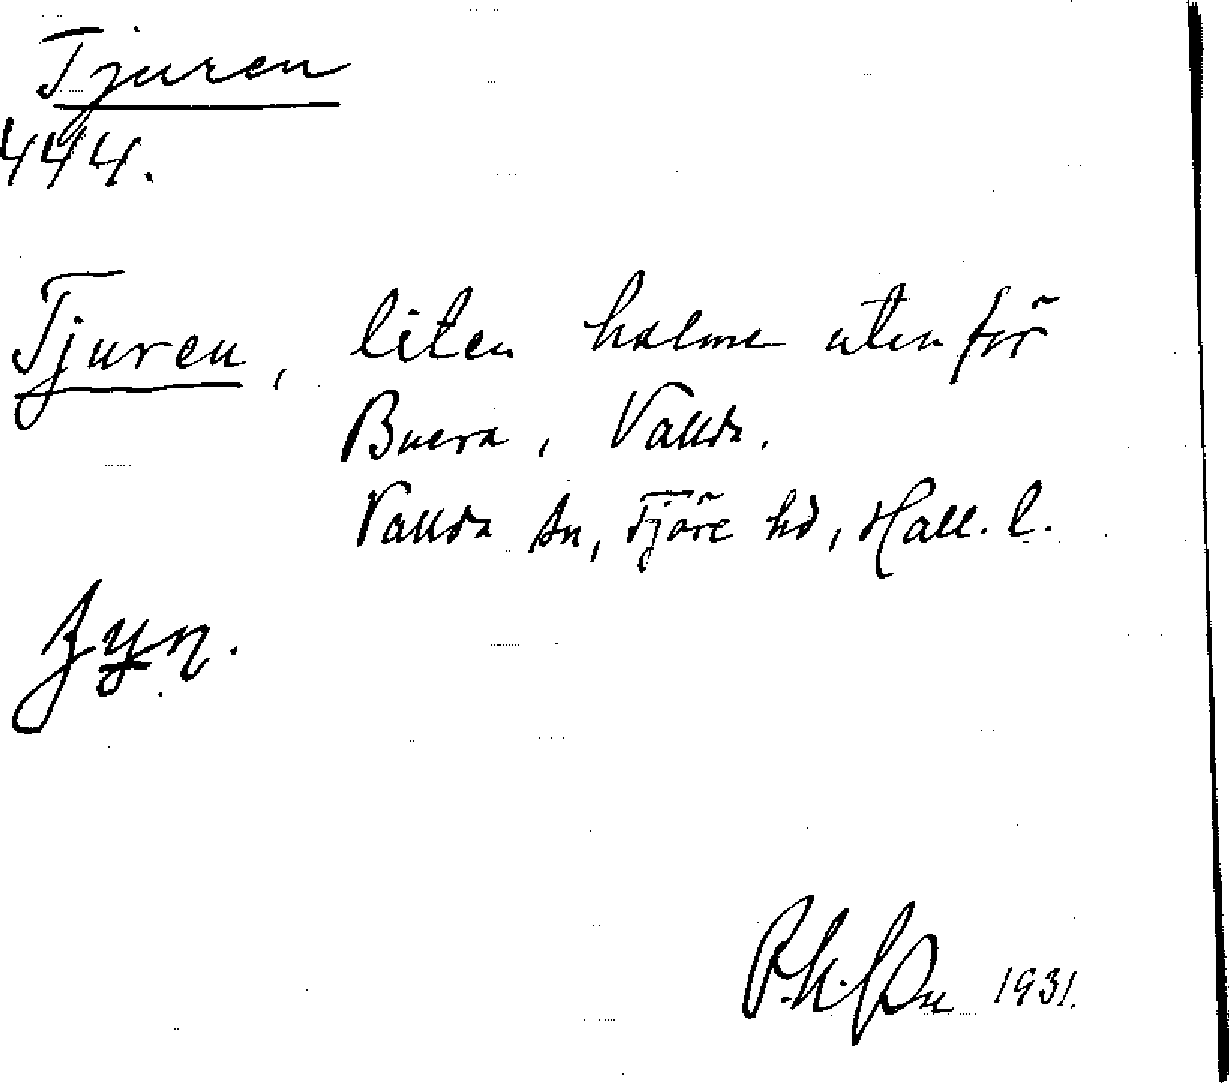 Tjuren
444.
Tjuren, liten holme utenför
Buera, Vallda.
Vallda sn, Fjäre hd, Hall. l.
1931.